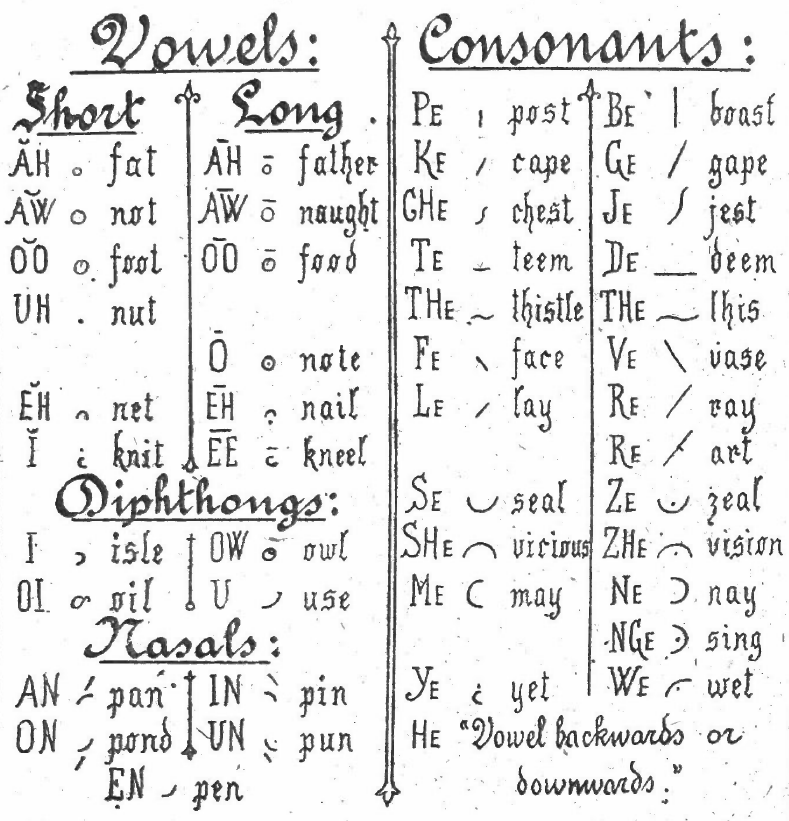 Vowels:
Short Long.
ĂH fat ĀH father
ĂW not ĀW naught
ŎŎ foot ŌŌ food
UH nut
Ō note
ĔH net ĒH nail
Ĭ knit ĒĒ kneel
Diphthongs:
I isle OW owl
OI oil U use
Nasals:
AN pan IN pin
ON pond UN pun
EN pen
Consonants:
PE post BE boast
KE cape GE gape
CHE chest JE jest
TE teem DE deem
THE thistle THE this
FE face VE vase
LE lay RE ray
RE art
SE seal ZE zeal
SHE vicious ZHE vision
ME may NE nay
NGE sing
YE yet WE wet
HE "Vowel backwards or
downwards."